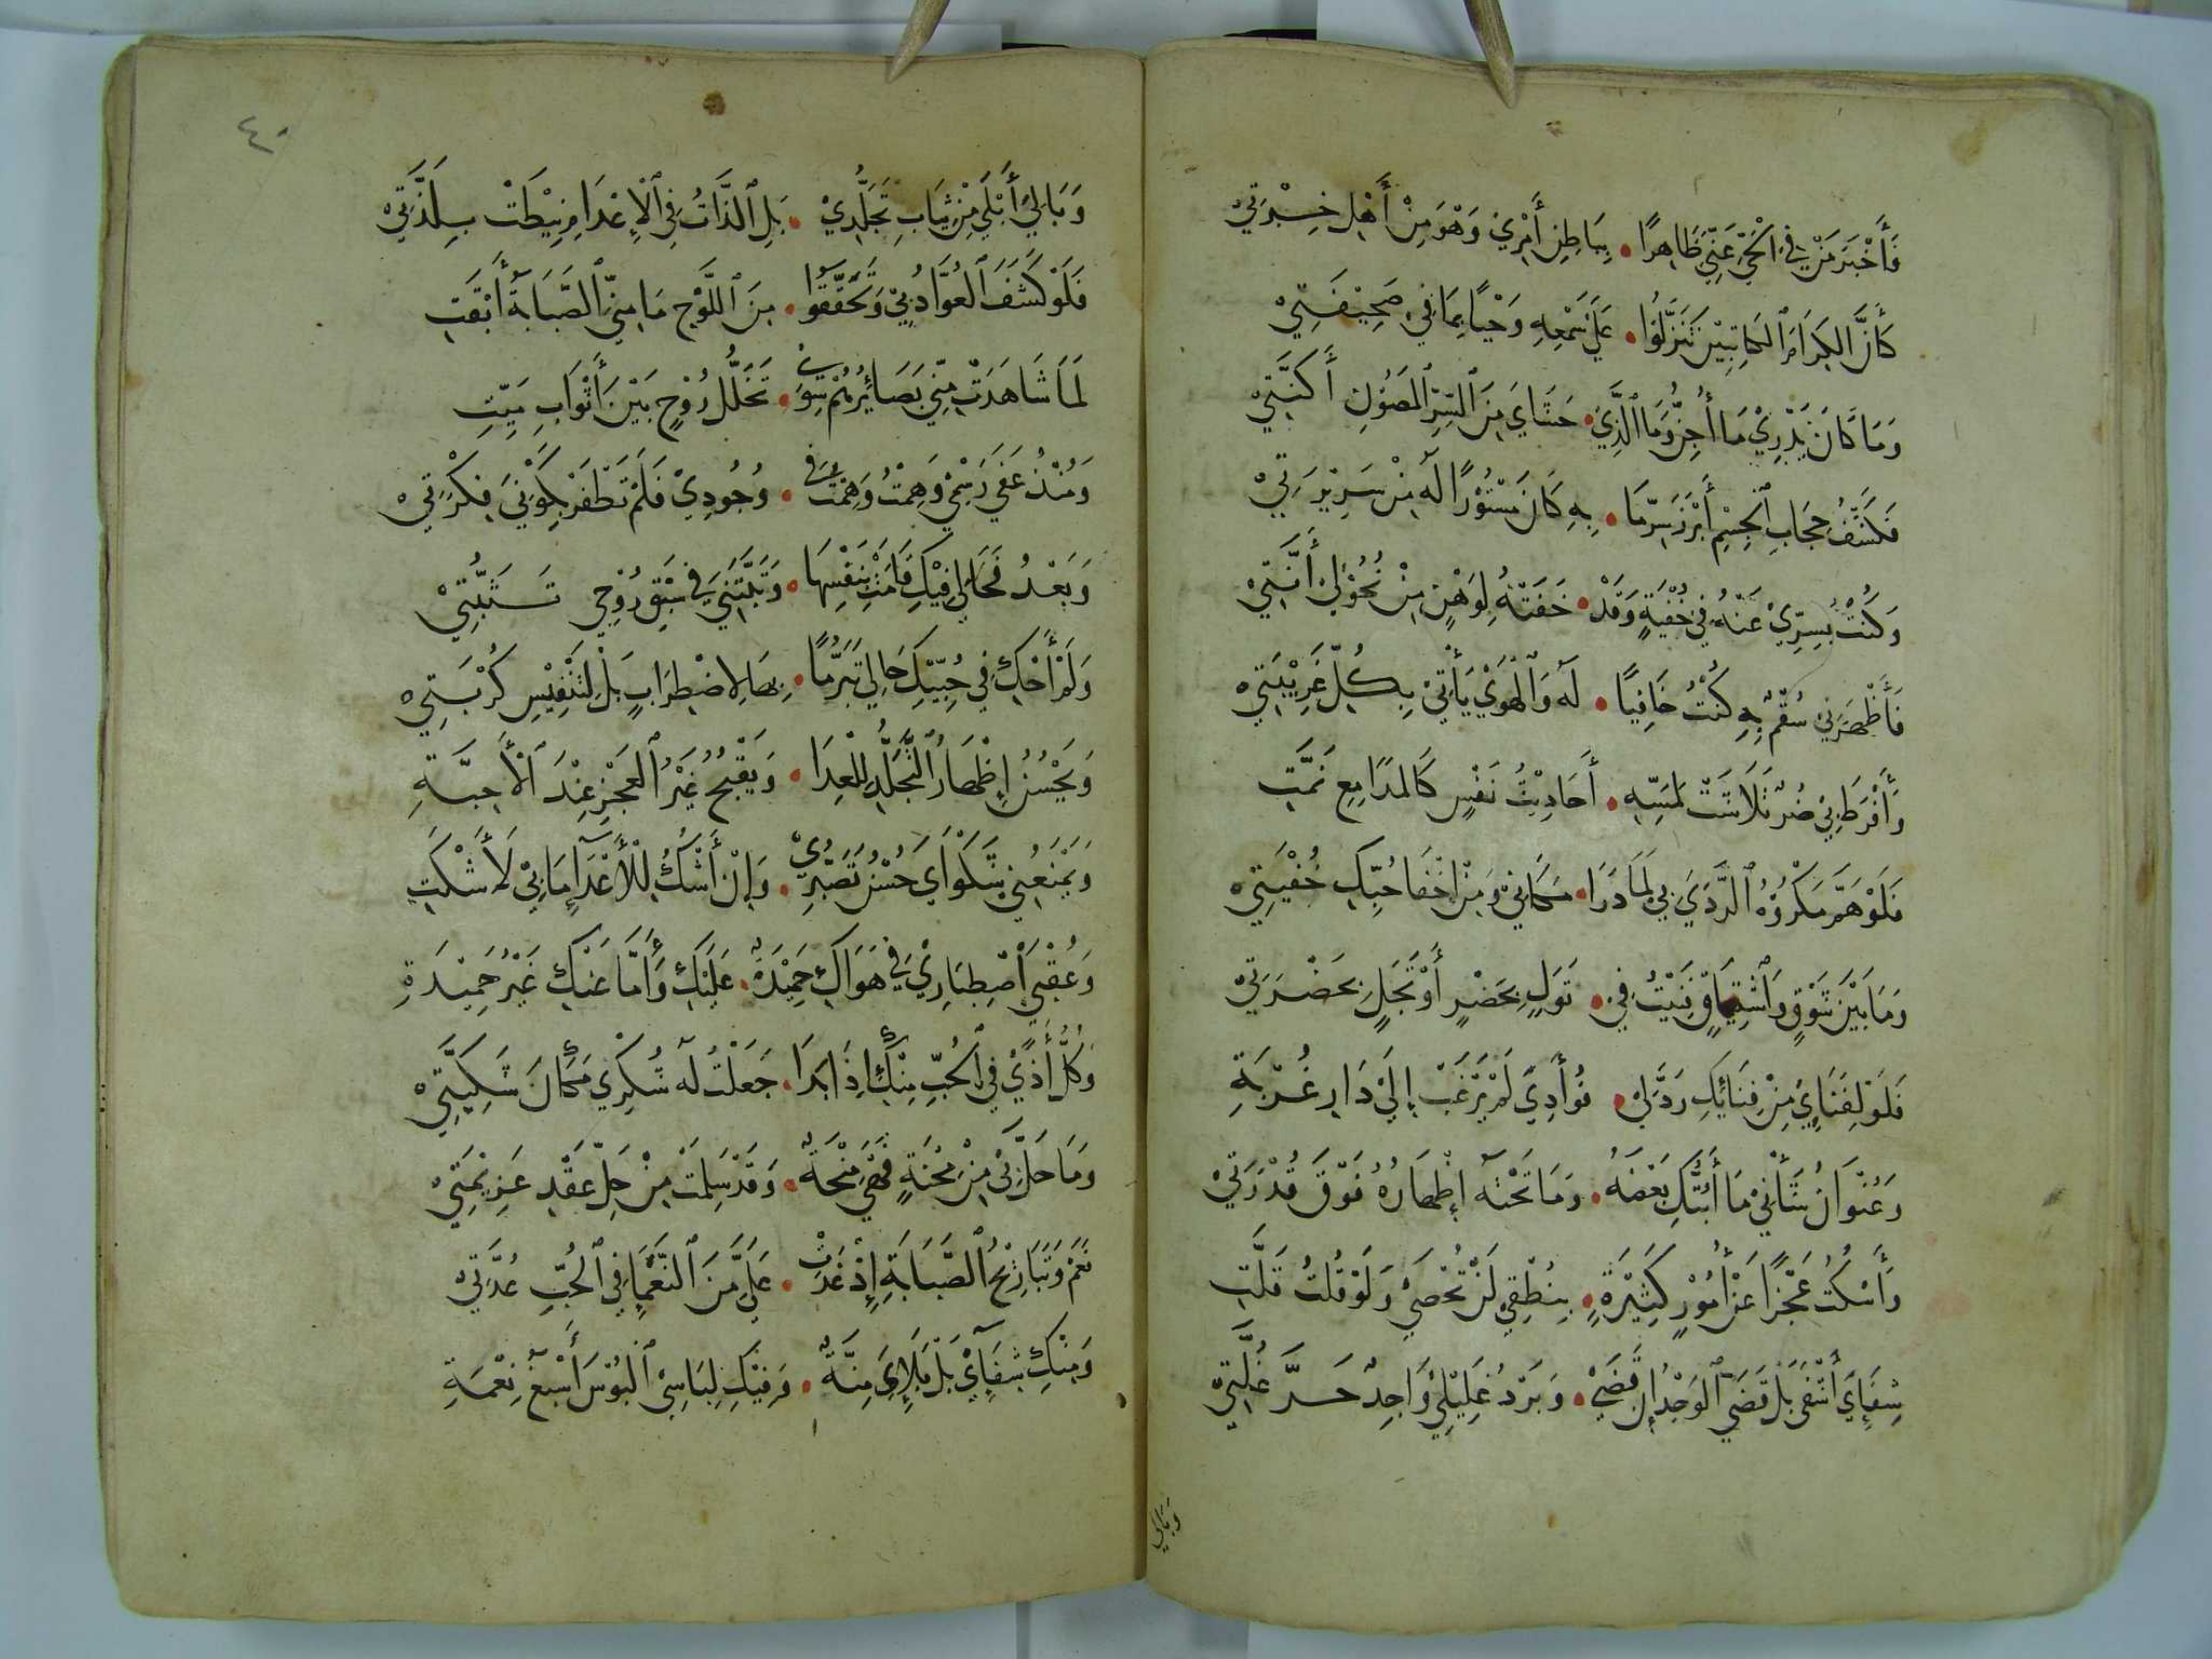 فَأَخْبَرَ مَنْ فِي الْحَيِّ عَنِّي ظَاهِرًا • بِبَاطِنِ أَمْرِي وَهْوَ مِنْ أَهْلِ خِبْرَتِيْ
كَأَنَّ الكِرَامَ الكَاتِبِيْنَ تَنَزَّلُوا • عَلَى سَمْعِهِ وَحْيًا بِمَا فِي صَحِيْفَتِيْ
وَمَا كَانَ يَدْرِيْ مَا أُجِنُّ وَمَا الَّذِيْ • حَشَايَ مِنَ السِّرِّ المَصُوْنِ أَكَنَّتِيْ
فَكَشْفُ حِجَابِ الجِسْمِ أَبْرَزَ سِرَّمَا • بِهِ كَانَ مَسْتُوْرًا لَهُ مِنْ سَرِيْرَتِيْ
وَكُنْتُ بِسِرِّيْ عَنْهُ فِي خُفْيَةٍ وَقَدْ • خَفَتْهُ لِوَهْنٍ مِنْ نُحُوْلِيْ أَنَّتِيْ
فَأَظْهَرَنِي سُقْمٌ بِهِ كُنْتُ خَافِيًا • لَهُ وَالْهَوَيْ يَأْتِيْ بِكُلِّ غَرِيْبَتِيْ
وَأَفْرَطَ بِيْ ضُرٌّ تَلَاشَتْ لِمَسِّهِ • أَحَادِيْثُ نَفْسٍ كَالمَدَامِعِ نَمَّتِ
فَلَوْ هَمَّ مَكْرُوْهُ الرَّدَيَ بِي لَمَا دَرَا • مَكَانِيْ وَمِنْ اخْفَا حُبِّكِ خُفْيَتِيْ
وَمَا بَيْنَ شَوْقٍ وَاشْتِيَاقٍ فَنِيْتُ فِي • تَوَلٍ بِحَضْرٍ أَوْ تَجَلٍ بِحَضْرَتِيْ
فَلَوْ لِفَنَاءِيْ مِنْ فِنَائِكِ رَدَّ لِيْ • فُؤَادِيْ لَمْ يَرْغَبْ إِلَيْ دَارِ غُرْبَةِ
وَعُنْوَانُ شَأْنِيْ مَا أَبُثُّكِ بَعْضَهُ • وَمَا تَحْتَهُ إِظْهَارُهُ فَوْقَ قُدْرَتِيْ
وَأَسْكُتُ عَجْزًا عَنْ أُمُوْرٍ كَثِيْرَةٍ • بِنُطْقِيْ لَنْ تُحْصَيْ وَلَوْ قُلْتُ قَلَّتِ
شِفَاءِيَ أَشْفَى بَلْ قَضَي الوَجْدُ إِنْ قَضَيْ • وَبَرْدُ غَلِيْلِيْ وَاجِدٌ حَرَّ غُلَّتِيْ
وَبَالِي
٤٠
وَبَالِيْ أَبْلَي مِنْ ثِيَابِ تَجَلُّدِيْ • بَلِ الذَّاتُ فِي الْإِعْدَامِ نِيْطَتْ بِلَذَّتِيْ
فَلَوْ كَشَفَ العُوَّادُ بِيْ وَتَحَقَّقُوْا • مِنَ اللَّوْحِ مَا مِنِّي الصَّبَابَةُ أَبْقَتِ
لَمَا شَاهَدَتْ مِنِّي بَصَائِرُهُمْ سِوَيْ • تَخَلُّلِ رُوْحٍ بَيْنَ أَثْوَابِ مَيِّتِ
وَمُنْذُ عَفَي رَسْمِيْ وَهِمْتُ وَهِمْتُ فِي • وُجُودِيْ فَلَمْ تَظْفَرْ بِكَوْنِيَ فِكْرَتِيْ
وَبَعْدُ فَحَالِي فِيْكِ قَامَتْ بِنَفْسِهَا • وَبَيِّنَتِيْ فِي سَبْقِ رُوْحِيْ تَثَبُّتِيْ
وَلَمْ أَحْكِ فِي حُبِّيْكِ حَالِي تَبَرُّمًا • بِهَا لِاضْطِرَابٍ بَلْ لِتَنْفِيْسِ كُرْبَتِيْ
وَيَحْسُنُ إِظْهَارُ التَّجَلُّدِ لِلْعِدَا • وَيَقْبُحُ غَيْرُ العَجْزِ عِنْدَ الْأَحِبَّةِ
وَيَمْنَعُنِي شَكْوَايَ حُسْنُ تَصَبُّرِيْ • وَإِنْ أَشْكُ لِلْأَعْدَاءِ مَابِيْ لَأَشْكَتِ
وَعُقْبَى اصْطِبَارِيْ فِي هَوَاكِ حَمِيْدَةٌ • عَلَيْكِ وَأَمَّا عَنْكِ غَيْرُ حَمِيْدَةِ
وَكُلُّ أَذًيْ فِي الحُبِّ مِنْكِ إِذَا بَدَا • جَعَلْتُ لَهُ شُكْرِي مَكَانَ شَكِيَّتِيْ
وَمَا حَلَّ بِيْ مِنْ مِحْنَةٍ فَهْيَ مِنْحَةٌ • وَقَدْ سَلِمَتْ مِنْ حَلِّ عَقْدٍ عَزِيْمَتِيْ
نَعَمْ وَتَبَارِيْحُ الصَّبَابَةِ إِذْ عَدَتْ • عَلَيَّ مِنَ النَّعْمَاءِ فِي الحُبِّ عُدَّتِيْ
وَمِنْكِ شِقَاءِيْ بَلْ بَلَاءِيَ مِنَّةٌ • وَفِيْكِ لِبَاسِيْ البُؤْسَ أَسْبَغُ نِعْمَةِ